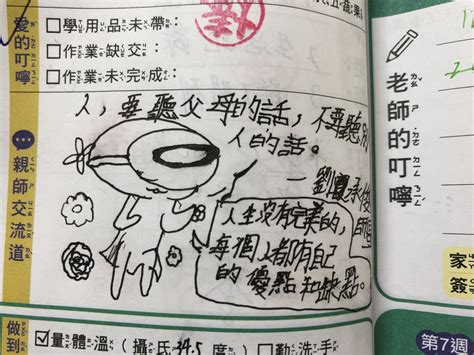 愛的叮嚀
□學用品未帶：
□作業缺交：
□作業未完成：
人，要聽父母的話，不要聽別
人的話。
親師交流道
人生沒有完美的，
每個人都有自己
的優點和缺點。
老師的叮嚀
做到
量體溫(攝氏34.5度)
□勤洗手
第7週